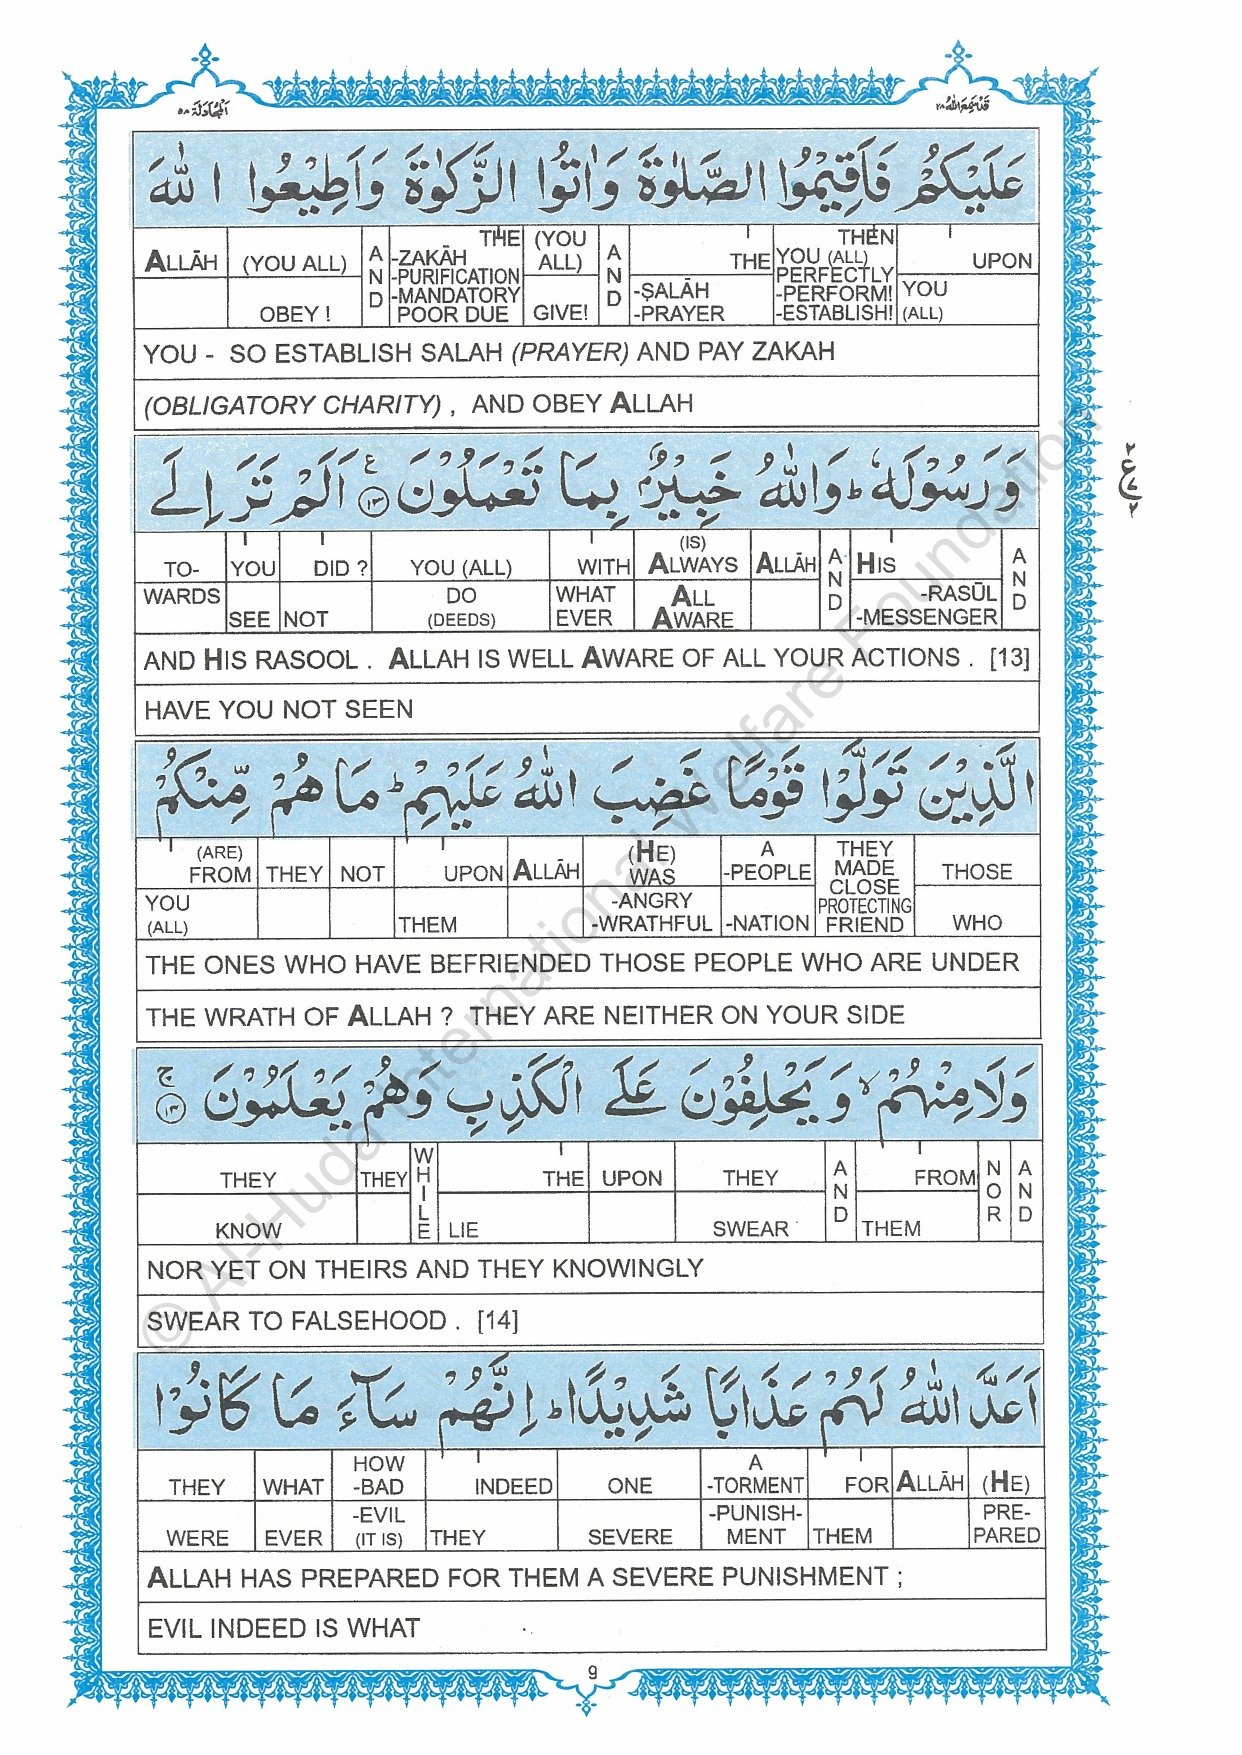 اَلْمُجَادَلَة ٥٨
قَدْ سَمِعَ اللهُ ٢٨
عَلَيْكُمْ فَاَقِيْمُوا الصَّلٰوةَ وَاٰتُوا الزَّكٰوةَ وَاَطِيْعُوا اللّٰهَ
ALLĀH (YOU ALL) AND THE (YOU AND THEN
-ZAKĀH ALL) THE YOU (ALL) UPON
-PURIFICATION PERFECTLY
OBEY ! -MANDATORY -ṢALĀH -PERFORM! YOU
POOR DUE GIVE! -PRAYER -ESTABLISH! (ALL)
YOU - SO ESTABLISH SALAH (PRAYER) AND PAY ZAKAH
(OBLIGATORY CHARITY) , AND OBEY ALLAH
وَرَسُوْلَهٗ ؕ وَاللّٰهُ خَبِيْرٌۢ بِمَا تَعْمَلُوْنَ ۝١٣ ع اَلَمْ تَرَ اِلَى
(IS)
TO- YOU DID ? YOU (ALL) WITH ALWAYS ALLĀH AND HIS AND
WARDS DO WHAT ALL -RASŪL
SEE NOT (DEEDS) EVER AWARE -MESSENGER
AND HIS RASOOL . ALLAH IS WELL AWARE OF ALL YOUR ACTIONS . [13]
HAVE YOU NOT SEEN
الَّذِيْنَ تَوَلَّوْا قَوْمًا غَضِبَ اللّٰهُ عَلَيْهِمْ ؕ مَا هُمْ مِّنْكُمْ
(ARE) (HE) A THEY
FROM THEY NOT UPON ALLĀH WAS -PEOPLE MADE THOSE
CLOSE
YOU -ANGRY PROTECTING
(ALL) THEM -WRATHFUL -NATION FRIEND WHO
THE ONES WHO HAVE BEFRIENDED THOSE PEOPLE WHO ARE UNDER
THE WRATH OF ALLAH ? THEY ARE NEITHER ON YOUR SIDE
وَلَا مِنْهُمْ ۙ وَيَحْلِفُوْنَ عَلَى الْكَذِبِ وَهُمْ يَعْلَمُوْنَ ۝١٤ ج
THEY THEY WHILE THE UPON THEY AND FROM NOR AND
KNOW LIE SWEAR THEM
NOR YET ON THEIRS AND THEY KNOWINGLY
SWEAR TO FALSEHOOD . [14]
اَعَدَّ اللّٰهُ لَهُمْ عَذَابًا شَدِيْدًا ؕ اِنَّهُمْ سَآءَ مَا كَانُوْا
HOW A
THEY WHAT -BAD INDEED ONE -TORMENT FOR ALLĀH (HE)
-EVIL -PUNISH- PRE-
WERE EVER (IT IS) THEY SEVERE MENT THEM PARED
ALLAH HAS PREPARED FOR THEM A SEVERE PUNISHMENT ;
EVIL INDEED IS WHAT
9
© Al-Huda International Welfare Foundation